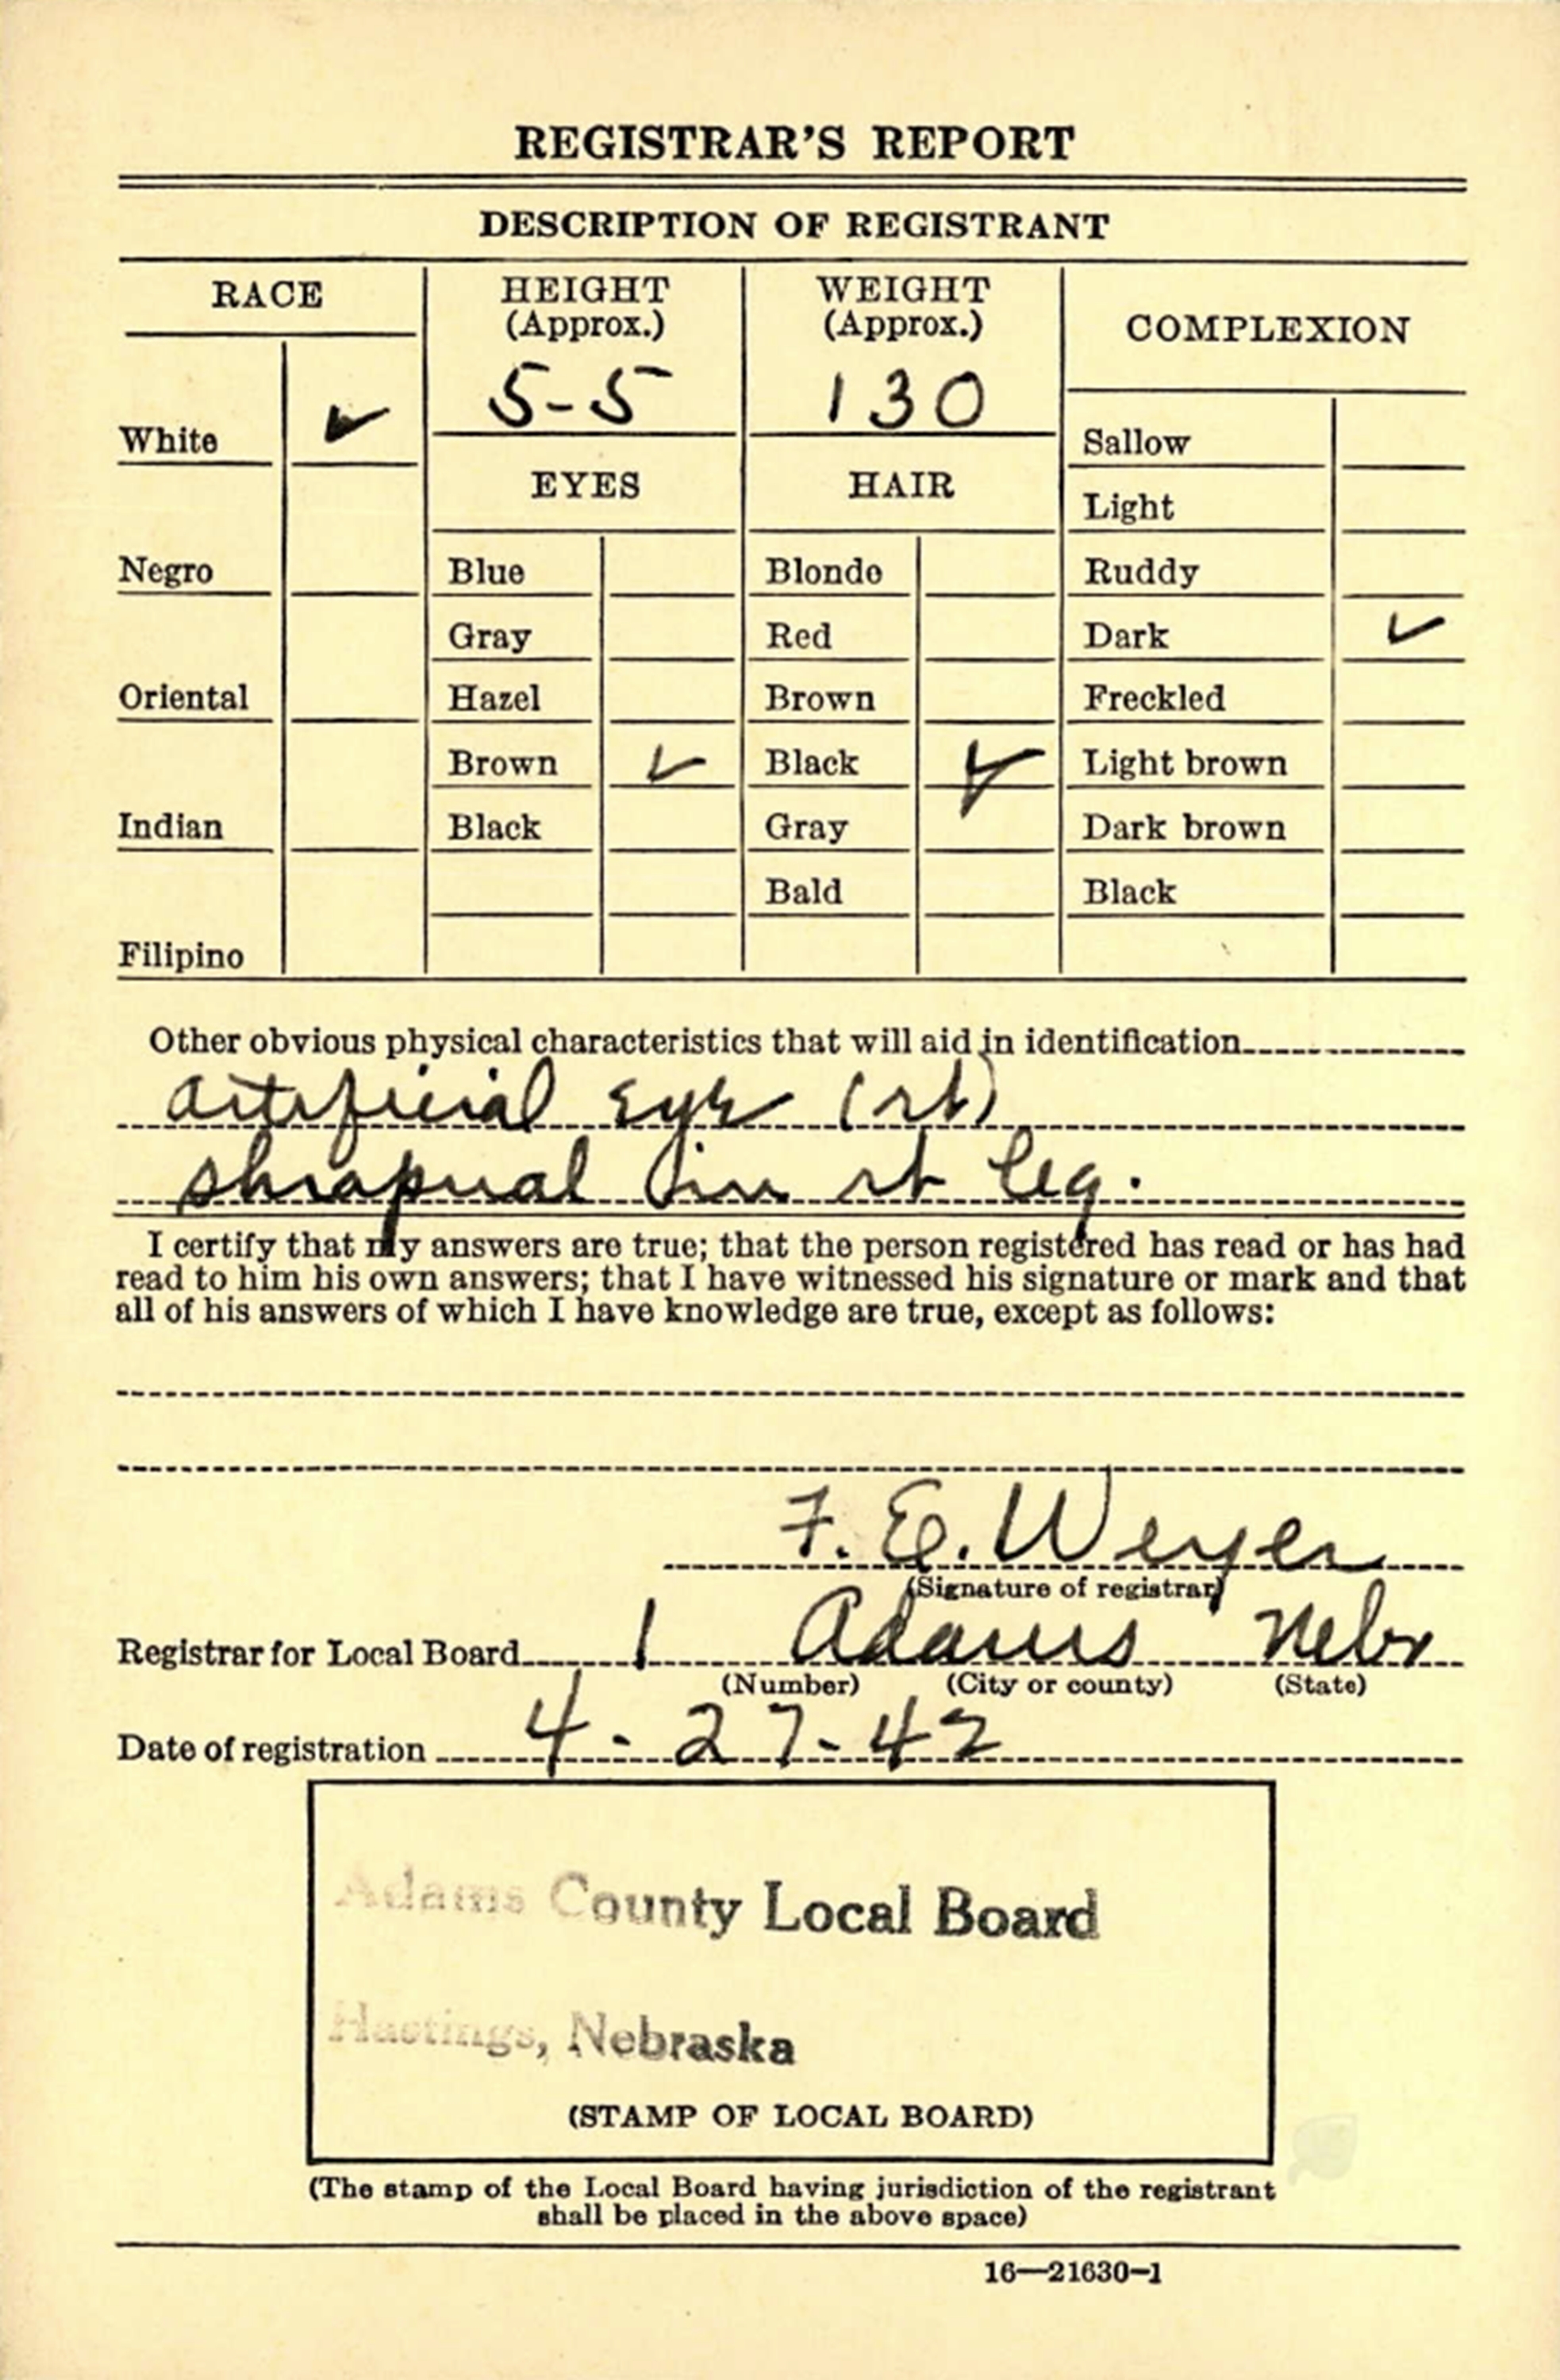 REGISTRAR'S REPORT
DESCRIPTION OF REGISTRANT
RACE
HEIGHT
(Approx.)
WEIGHT
(Approx.)
COMPLEXION
5-5
130
White ✓
Sallow
EYES
HAIR
Light
Negro
Blue
Blonde
Ruddy
Gray
Red
Dark ✓
Oriental
Hazel
Brown
Freckled
Brown ✓
Black ✓
Light brown
Indian
Black
Gray
Dark brown
Bald
Black
Filipino
Other obvious physical characteristics that will aid in identification
artificial eye (rt)
shrapnal in rt leg.
I certify that my answers are true; that the person registered has read or has had
read to him his own answers; that I have witnessed his signature or mark and that
all of his answers of which I have knowledge are true, except as follows:
F. E. Weyer
(Signature of registrar)
Registrar for Local Board 1 Adams Nebr
(Number) (City or county) (State)
Date of registration 4-27-42
Adams County Local Board
Hastings, Nebraska
(STAMP OF LOCAL BOARD)
(The stamp of the Local Board having jurisdiction of the registrant
shall be placed in the above space)
16—21630-1